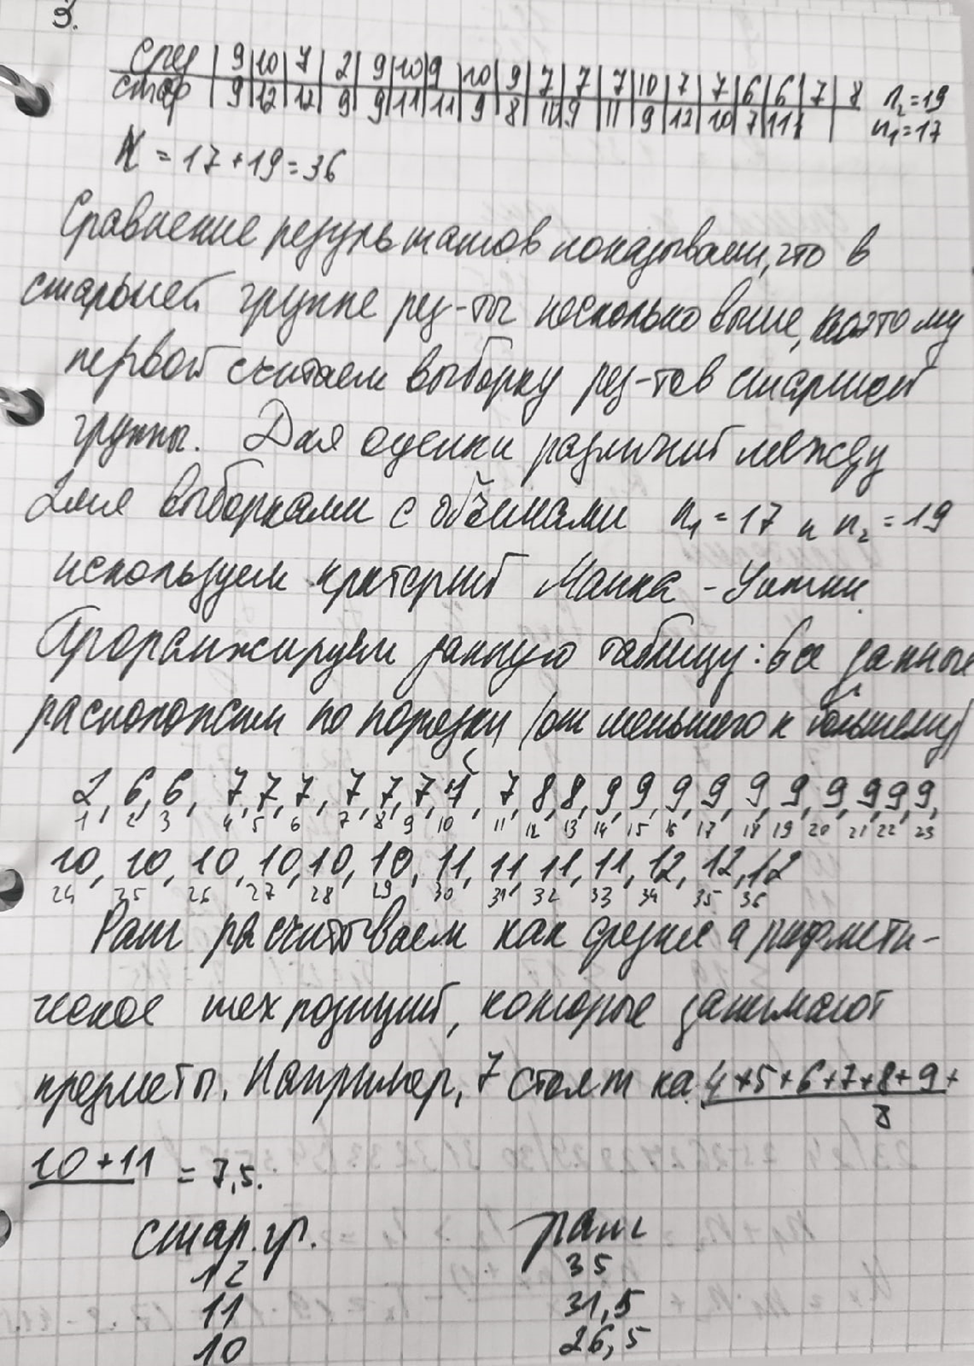 3.
сред | 9 | 10 | 7 | 2 | 9 | 10 | 9 | 10 | 9 | 7 | 7 | 7 | 10 | 7 | 7 | 6 | 6 | 7 | 8 n₂=19
стар | 9 | 12 | 12 | 9 | 9 | 11 | 11 | 9 | 8 | 10 | 9 | 11 | 9 | 12 | 10 | 7 | 11 | n₁=17
N = 17+19=36
Сравнение результатов показывает, что в
старшей группе рез-ты несколько выше, поэтому
первой считаем выборку рез-тов старшей
группы. Для оценки различий между
2мя выборками с объёмами n₁=17 и n₂=19
используем критерий Манна - Уитни.
Проранжируем данную таблицу: все данные
расположим по порядку (от меньшего к большему)
2, 6, 6, 7, 7, 7, 7, 7, 7, 7, 7, 8, 8, 9, 9, 9, 9, 9, 9, 9, 9, 9, 9,
1 2 3 4 5 6 7 8 9 10 11 12 13 14 15 16 17 18 19 20 21 22 23
10, 10, 10, 10, 10, 10, 11, 11, 11, 11, 12, 12, 12
24 25 26 27 28 29 30 31 32 33 34 35 36
Ранг расчитываем как среднее арифмети-
ческое тех позиций, которые занимают
предметы. Например, 7 стоят на 4+5+6+7+8+9+
8
10+11 = 7,5.
стар.гр. ранг
12 35
11 31,5
10 26,5